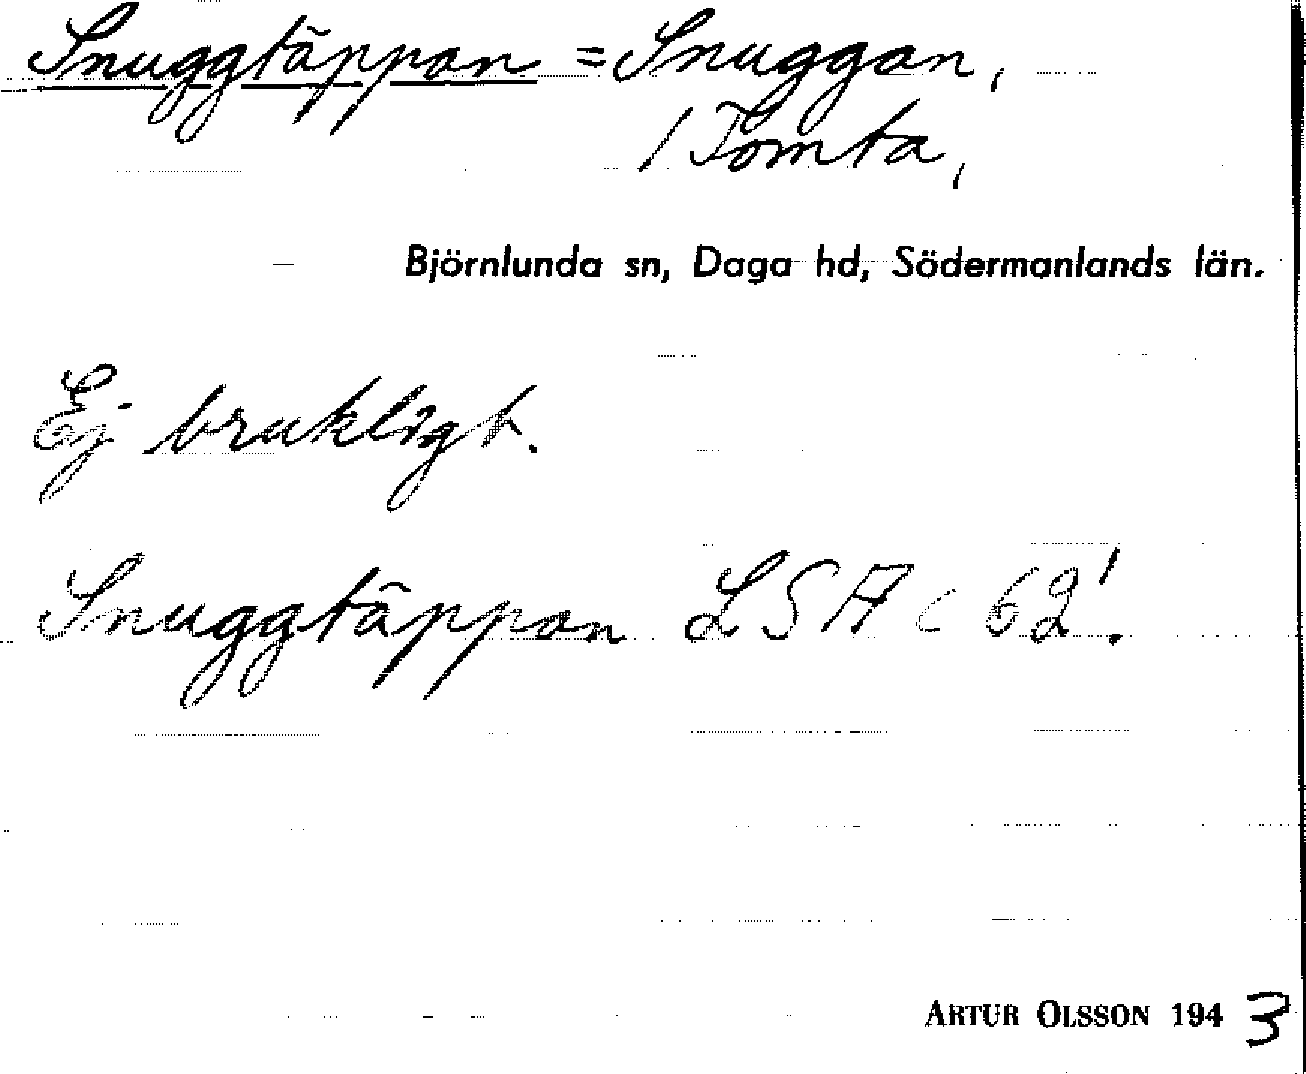 Snuggtäppan = Snuggan,
/ Tomta,
Björnlunda sn, Daga hd, Södermanlands län.
Ej brukligt.
Snuggtäppan LSA c 62!
ARTUR OLSSON 1943